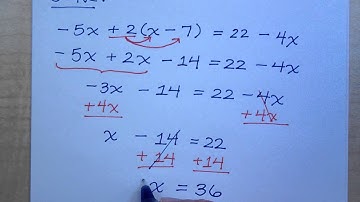 -5x + 2(x - 7) = 22 - 4x
-5x + 2x - 14 = 22 - 4x
-3x - 14 = 22 - 4x
+4x +4x
x - 14 = 22
+ 14 +14
x = 36